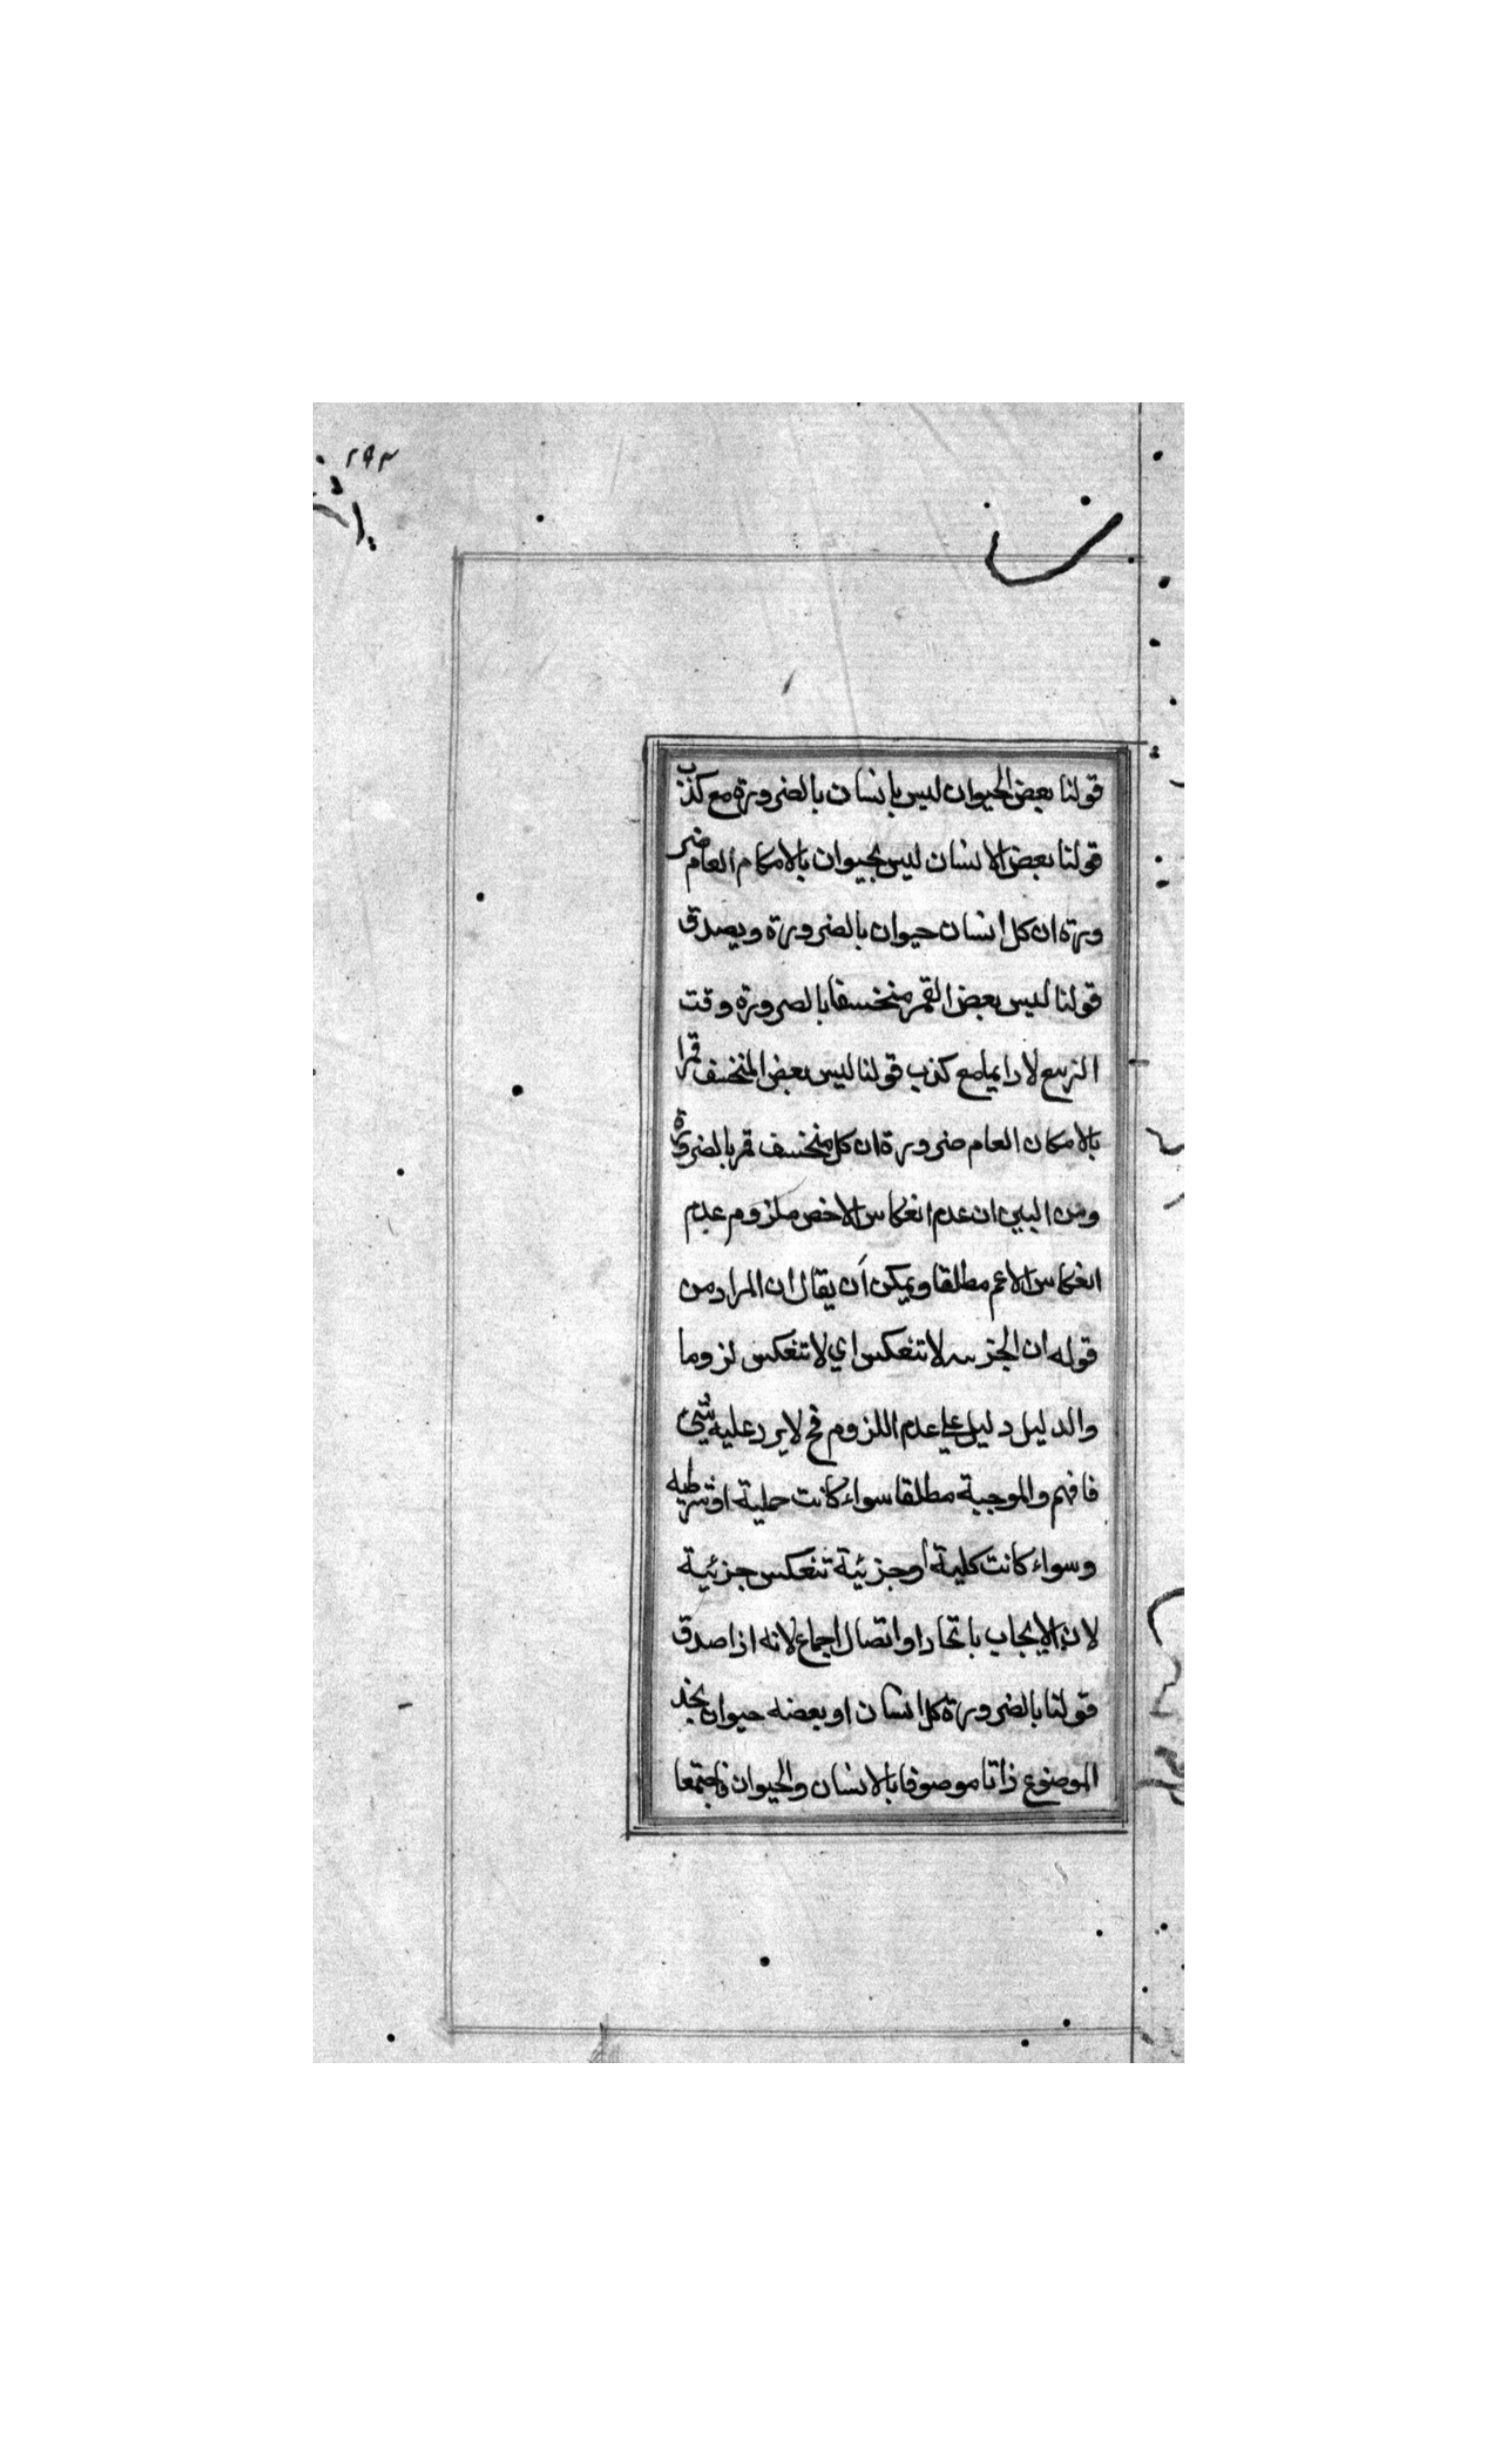 ٢٩٣
قولنا بعض الحيوان ليس بانسان بالضرورة مع كذب
قولنا بعض الانسان ليس بحيوان بالامكام العام ضر
ورة ان كل انسان حيوان بالضرورة ويصدق
قولنا ليس بعض القمر منخسفا بالضرورة وقت
التربيع لا دايما مع كذب قولنا ليس بعض المنخسف قمرا
بالامكان العام ضرورة ان كل منخسف قمر بالضرورة
ومن البين ان عدم انعكاس الاخص ملزوم عدم
انعكاس الاعم مطلقا ويمكن أن يقال ان المراد من
قوله ان الجزييه لا تنعكس اي لا تنعكس لزوما
والدليل دليل على عدم اللزوم فح لا يرد عليه شيئ
فافهم والموجبة مطلقا سواء كانت حملية او شرطيه
وسواء كانت كلية أو جزئية تنعكس جزئية
لان الايجاب باتحاد او اتصال اجماع لانه اذا صدق
قولنا بالضرورة كل انسان او بعضه حيوان بخد
الموضوع ذاتا موصوفا بالانسان والحيوان فاجتمعا